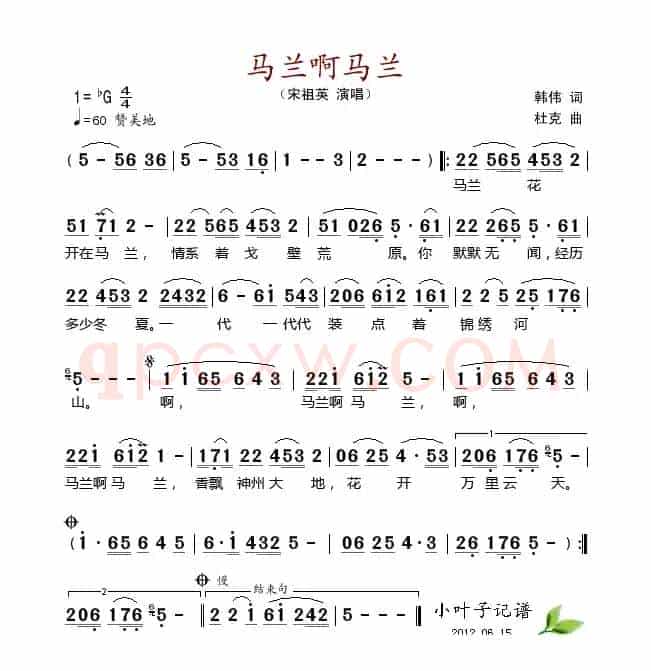 马兰啊马兰
（宋祖英 演唱）
1= ♭G 4/4
韩伟 词
♩=60 赞美地
杜克 曲
( 5 - 56 36 | 5 - 53 16 | 1 - - 3 | 2 - - - ) ‖: 22 565 453 2 |
马兰 花
51 71 2 - | 22 565 453 2 | 51 026 5 · 61 | 22 265 5 · 61 |
开在马 兰， 情系 着 戈 壁 荒 原。你 默默 无 闻，经历
22 453 2 2432 | 6 - 61 543 | 206 612 12 161 | 2 2 5 25 176 |
多少冬 夏。一 代 一代代 装 点 着 锦绣 河
5 - - - | 1 165 6 4 3 | 221 612 5 - | 1 165 6 4 3 |
山。 啊， 马兰啊 马 兰， 啊，
221 612 1 - | 171 22 453 2 | 25 6 4 · 53 | 206 176 5 - |
马兰啊 马 兰， 香飘 神州 大 地， 花 开 万 里云 天。
( 1 · 65 6 4 5 | 6 · 1 432 5 - | 06 25 4 · 3 | 2 · 176 5 - ) :‖
2 慢 结束句
206 176 5 - ‖ 2 2 61 242 | 5 - - - ‖
小叶子记谱
2012.06.15
qpcxw.COM